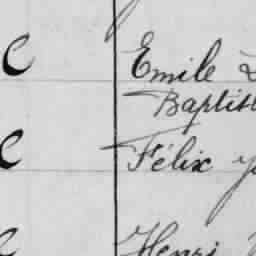 C Emile
Baptist
C Félix
C Henri